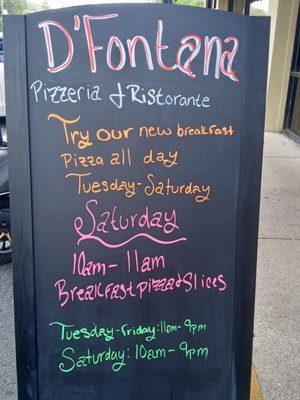 D'Fontana
Pizzeria & Ristorante
Try our new breakfast
Pizza all day
Tuesday-Saturday
Saturday
10am-11am
Breakfast pizza & Slices
Tuesday-friday: 11am-9pm
Saturday: 10am-9pm